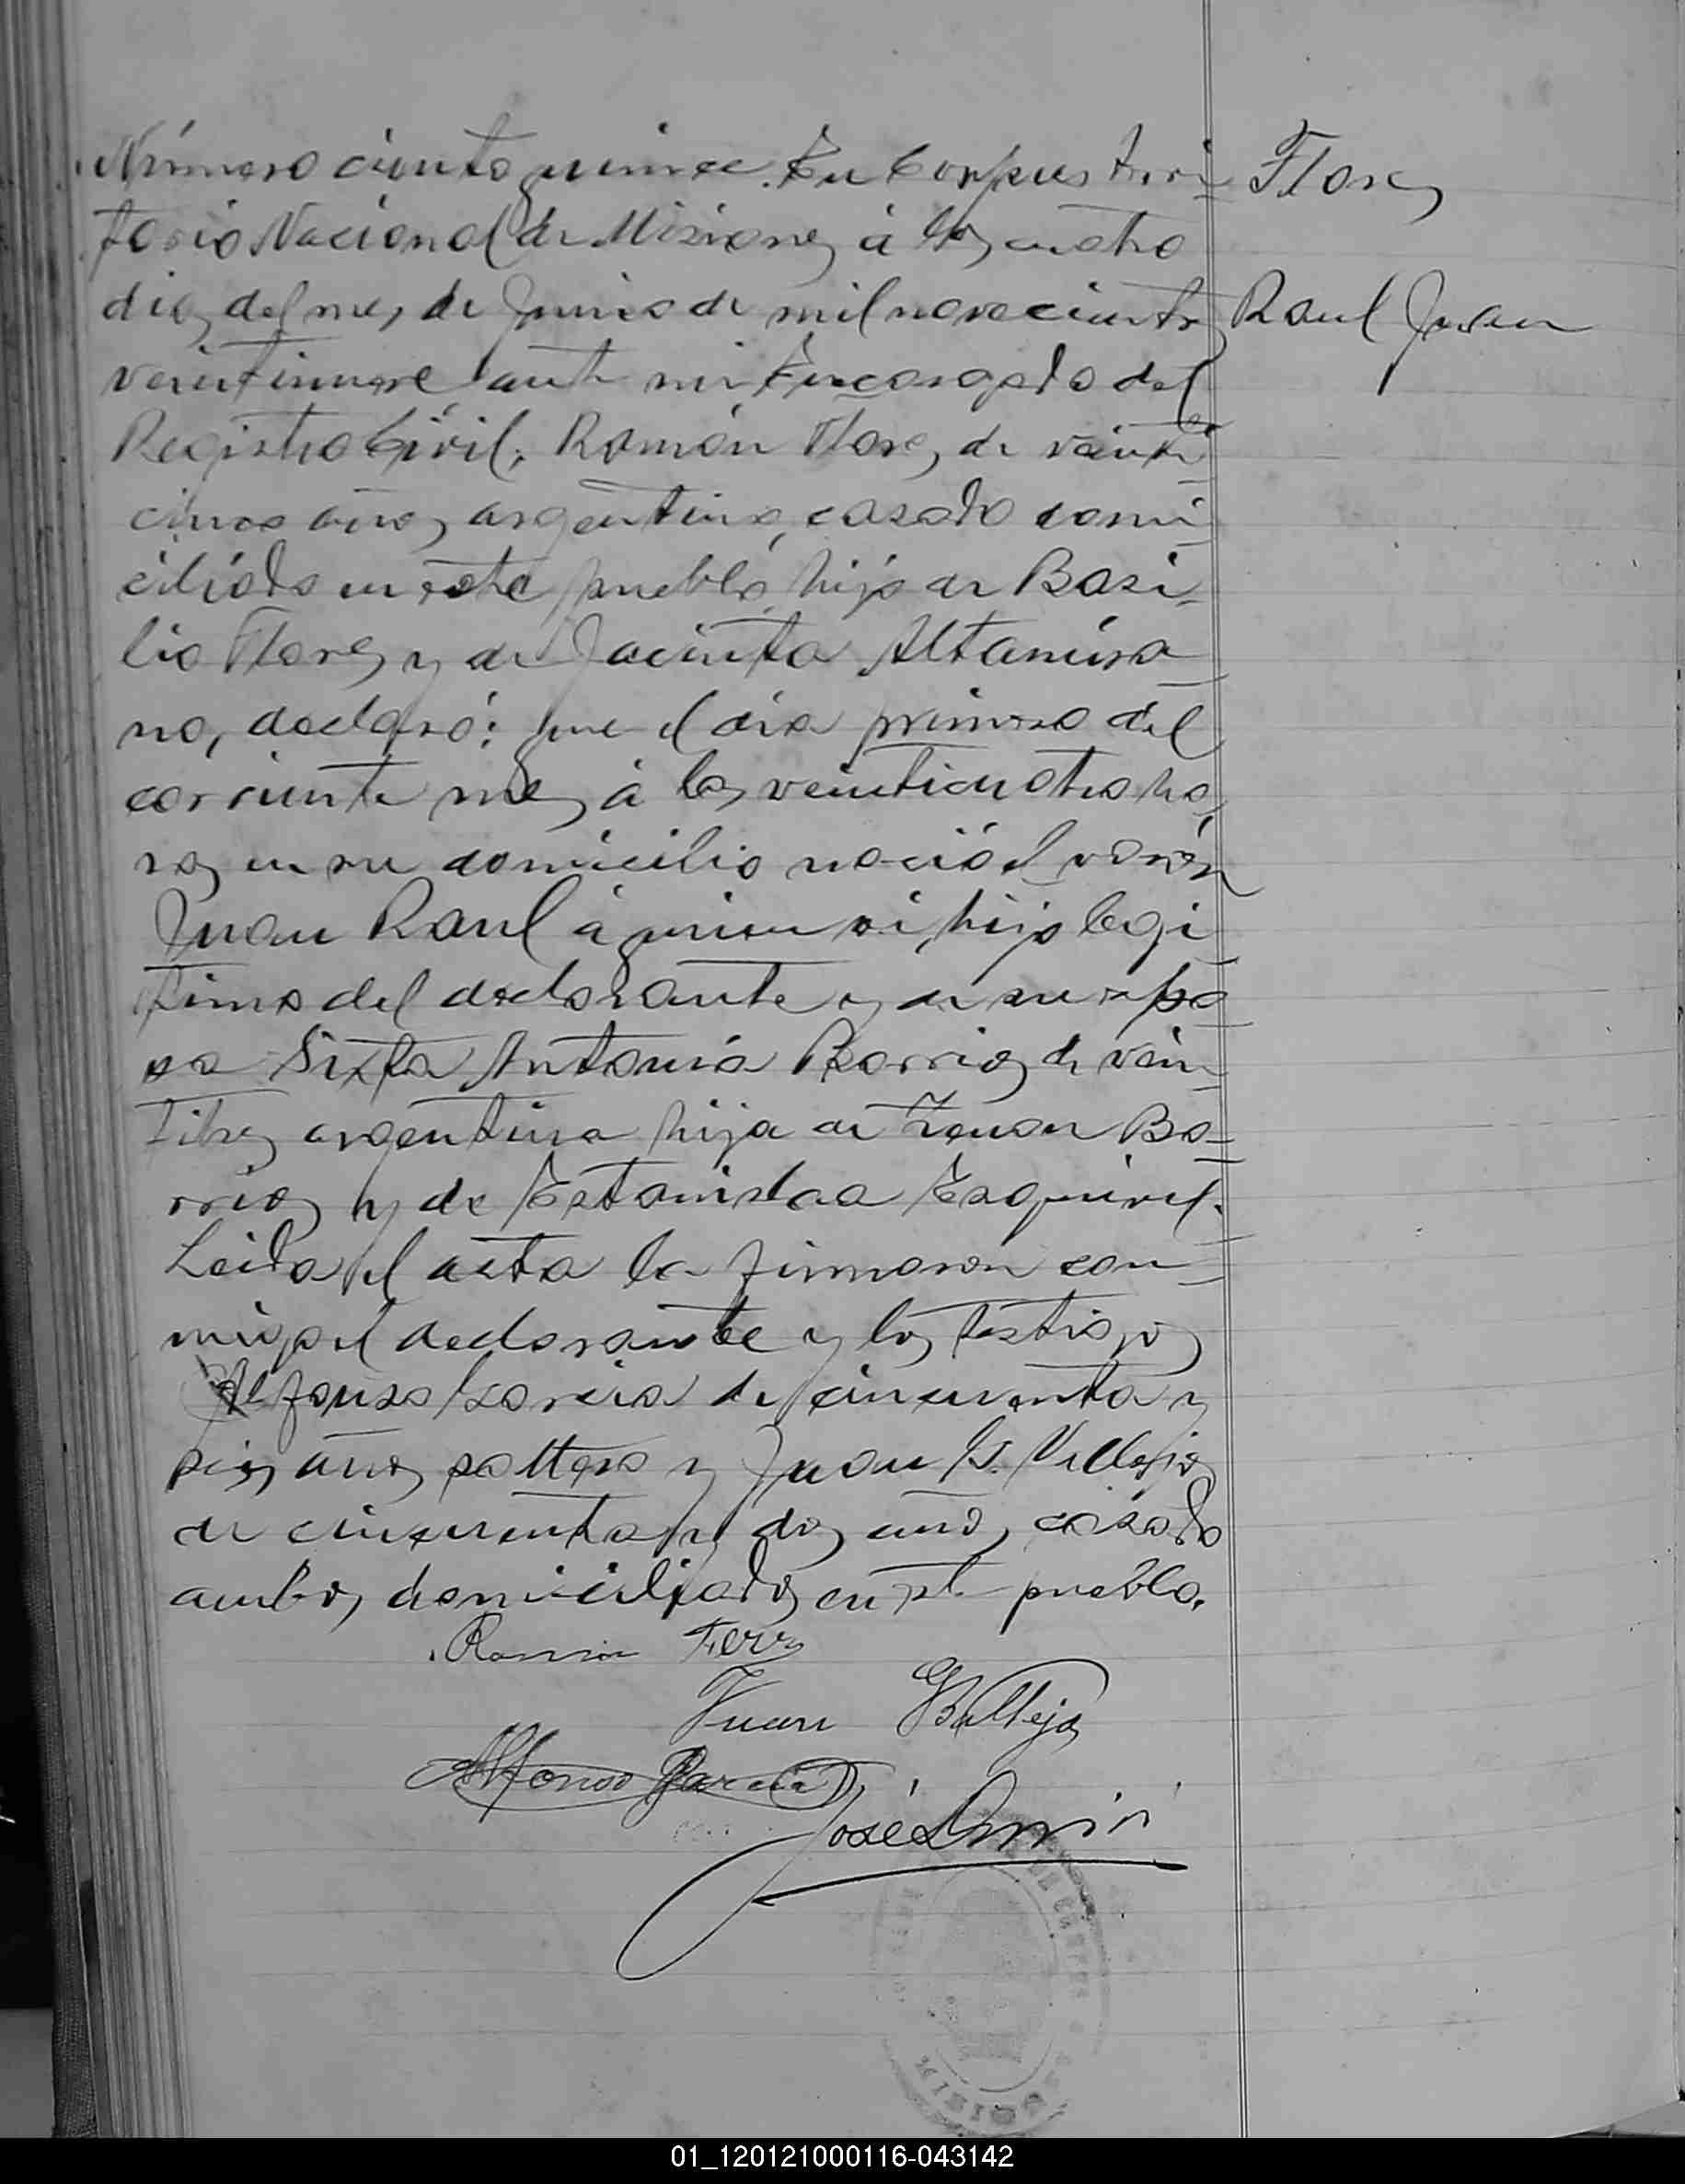 Número ciento quince. En Corpus Terri-
torio Nacional de Misiones á los cuatro
dias del mes de Junio de mil novecientos
veintinueve ante mi Encargado del
Registro Civil, Ramón Flores, de veinti
cinco años, argentino, casado domi-
ciliado en este pueblo, hijo de Basi-
lio Flores y de Jacinta Altamira-
no, declaró: que el dia primero del
corriente mes á las veinticuatro ho
ras en su domicilio nació el varón
Juan Raul á quien vi, hijo legi
timo del declarante y de su espo
sa Sixta Antonia Barrios de vein-
titres argentina hija de Zenon Ba-
rrios y de Estanislaa Esquivel.
Leida el acta la firmaron con-
migo el declarante y los testigos
Alfonso Garcia de cincuenta y
seis años soltero y Juan G. Vallejos
de cincuenta y dos años, casado
ambos domiciliados en este pueblo.
Ramon
Juan G Ballejos
Alfonso Garcia
José
Flores
Raul Juan
01_120121000116-043142